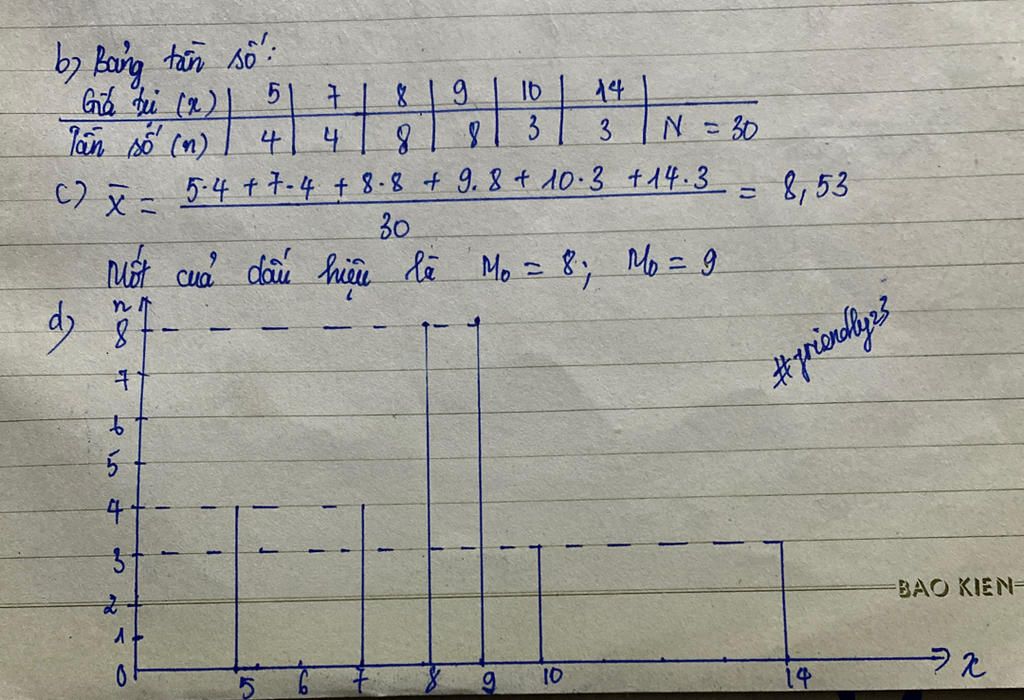 b) Bảng tần số:
Giá trị (x) | 5 | 7 | 8 | 9 | 10 | 14 |
Tần số (n) | 4 | 4 | 8 | 8 | 3 | 3 | N = 30
c) X̄ = (5·4 + 7·4 + 8·8 + 9.8 + 10·3 + 14·3) / 30 = 8,53
Mốt của dấu hiệu là M₀ = 8; M₀ = 9
d)
n
8
7
6
5
4
3
2
1
0
5 6 7 8 9 10 14 x
#friendly23
BAO KIEN